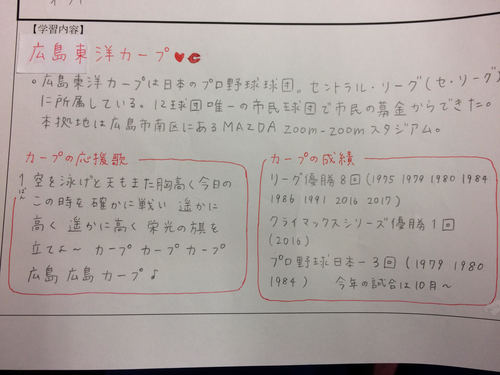 【学習内容】
広島東洋カープ♥C
。広島東洋カープは日本のプロ野球球団。セントラル・リーグ(セ・リーグ)
に所属している。12球団唯一の市民球団で市民の募金からできた。
本拠地は広島市南区にあるMAZDA ZOOM-ZOOMスタジアム。
カープの応援歌
1ばん
空を泳げと天もまた胸高く今日の
この時を確かに戦い 遥かに
高く 遥かに高く 栄光の旗を
立てよ～ カープ カープ カープ
広島 広島 カープ♪
カープの成績
リーグ優勝8回(1975 1979 1980 1984
1986 1991 2016 2017)
クライマックスシリーズ優勝1回
(2016)
プロ野球日本一3回(1979 1980
1984) 今年の試合は10月～